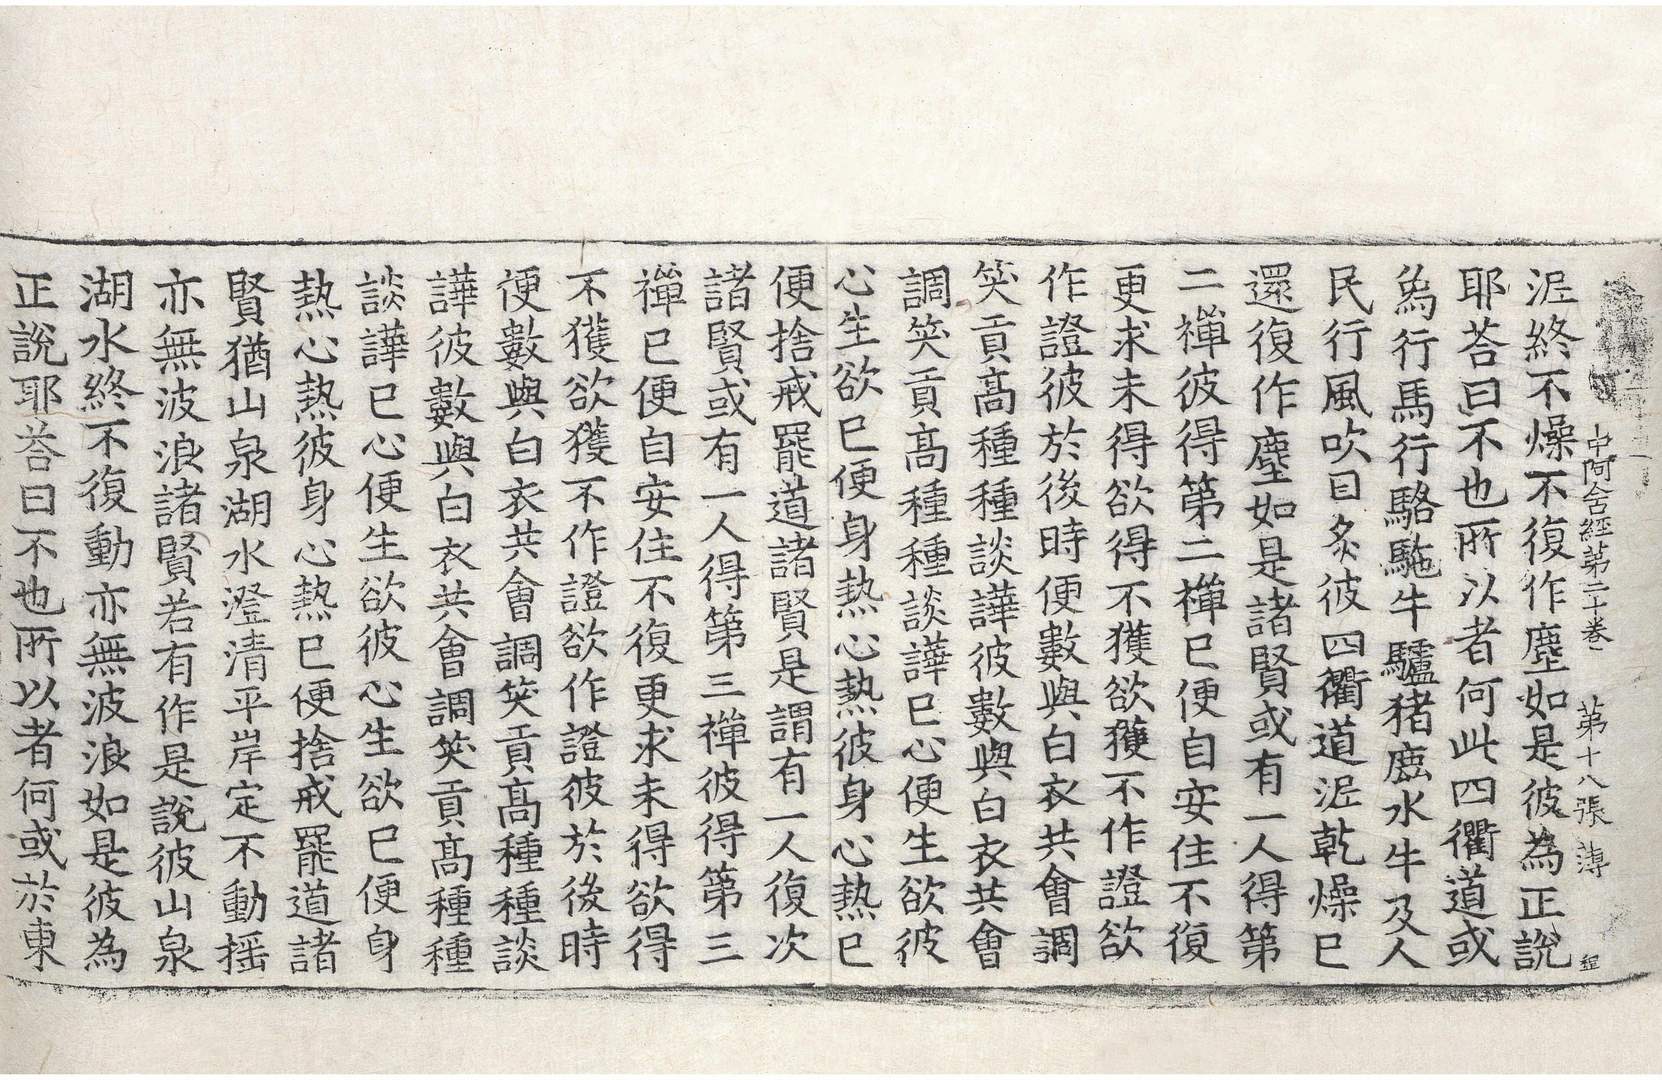 中阿含經第二十卷　第十八張　薄　程
泥終不燥不復作塵如是彼為正說
耶荅曰不也所以者何此四衢道或
象行馬行駱駞牛驢猪鹿水牛及人
民行風吹日炙彼四衢道泥乾燥已
還復作塵如是諸賢或有一人得第
二禪彼得第二禪已便自安住不復
更求未得欲得不獲欲獲不作證欲
作證彼於後時便數與白衣共會調
笑貢高種種談譁彼數與白衣共會
調笑貢高種種談譁已心便生欲彼
心生欲已便身熱心熱彼身心熱已
便捨戒罷道諸賢是謂有一人復次
諸賢或有一人得第三禪彼得第三
禪已便自安住不復更求未得欲得
不獲欲獲不作證欲作證彼於後時
便數與白衣共會調笑貢高種種談
譁彼數與白衣共會調笑貢高種種
談譁已心便生欲彼心生欲已便身
熱心熱彼身心熱已便捨戒罷道諸
賢猶山泉湖水澄清平岸定不動搖
亦無波浪諸賢若有作是說彼山泉
湖水終不復動亦無波浪如是彼為
正說耶荅曰不也所以者何或於東